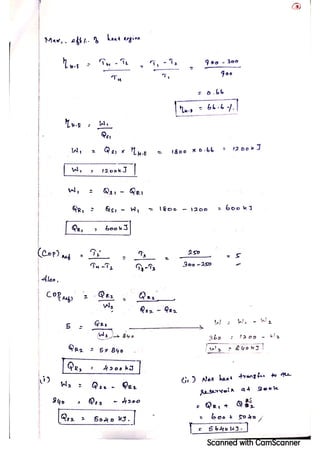 Max. effi. of heat engine
η H.E = (T_H - T_L) / T_H = (T_1 - T_2) / T_1 = (900 - 300) / 900
= 0.66
η H.E = 66.6 %
η H.E = W_1 / Q_S1
W_1 = Q_S1 × η H.E = 1800 × 0.66 = 1200 kJ
W_1 = 1200 kJ
W_1 = Q_S1 - Q_R1
Q_R1 = Q_S1 - W_1 = 1800 - 1200 = 600 kJ
Q_R1 = 600 kJ
(COP) = T_L / (T_H - T_L) = T_3 / (T_2 - T_3) = 250 / (300 - 250) = 5
Also,
COP = Q_R2 / W_2 = Q_R2 / (Q_S2 - Q_R2)
5 = Q_R2 / 840
W = W_1 - W_2
360 = 1200 - W_2
W_2 = 840 kJ
Q_R2 = 5 × 840
Q_R2 = 4200 kJ
i) W_2 = Q_S2 - Q_R2
840 = Q_S2 - 4200
Q_S2 = 5040 kJ.
ii) Net heat transfer to the
reservoir at 300 k
= Q_R1 + Q
= 600 + 5040
= 5640 kJ.
Scanned with CamScanner